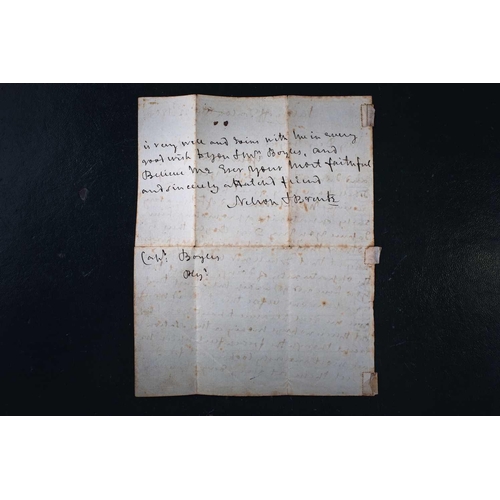 is very well and Joins with me in every
good wish to You & Mrs. Boyles, and
Believe Me Ever Your Most faithful
and sincerely attached friend
Nelson & Bronte
Capt. Boyles